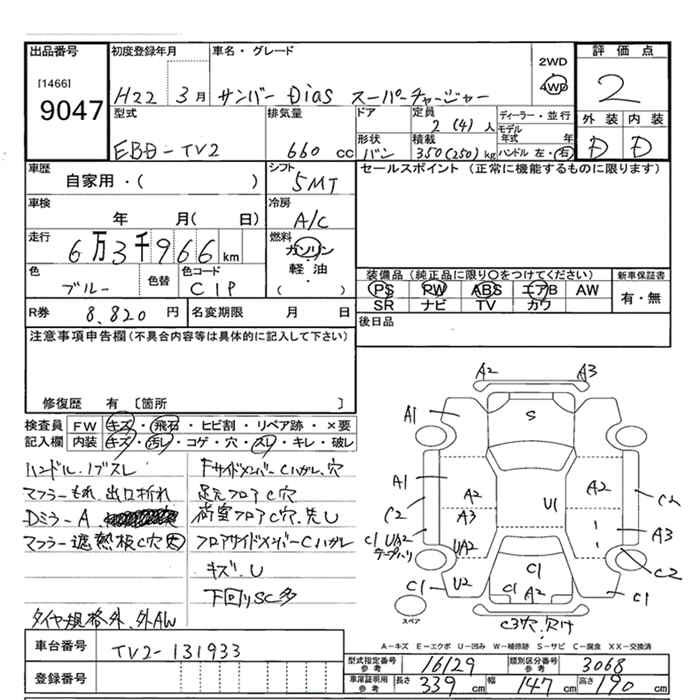 出品番号 初度登録年月 車名・グレード 2WD 評価点
[1466] 9047 H22 3月 サンバー Dias スーパーチャージャー 4WD 2
型式 排気量 ドア 定員 2(4)人 ディーラー・並行 外装 内装
モデル年式 年
EBD-TV2 660cc 形状 バン 積載 350(250)kg ハンドル 左・右 D D
車歴 シフト セールスポイント(正常に機能するものに限ります)
自家用・( ) 5MT
車検 冷房
年 月( 日) A/C
走行 燃料
6万3千966km ガソリン
軽油・( )
色 色替 色コード 装備品(純正品に限り○をつけてください) 新車保証書
ブルー C1P PS PW ABS エアB AW 有・無
SR ナビ TV カワ
R券 8,820円 名変期限 月 日 後日品
注意事項申告欄(不具合内容等は具体的に記入して下さい)
修復歴 有〔箇所 〕
検査員 FW キズ・飛石・ヒビ割・リペア跡・×要
記入欄 内装 キズ・汚レ・コゲ・穴・スレ・キレ・破レ
ハンドル.ノブスレ Fサイドメンバー Cハガレ、穴
マフラーもれ、出口折れ 足元フロアC穴
Dミラー A 荷室フロアC穴、先U
マフラー遮熱板C穴大 フロアサイドメンバーCハガレ
キズ.U
下回りSC多
タイヤ規格外、外AW
A2 A3
A1 S A1
A1 A2 U1 A2 C2
C2 A3 A3
C1 UA2 UA2 C2
テープハリ
C1 U2 C1 C1 A2 C1
スペア C3穴.欠け
A-キズ E-エクボ U-凹み W-補修跡 S-サビ C-腐食 XX-交換済
車台番号 TV2-131933
型式指定番号 参考 16129 類別区分番号 参考 3068
登録番号 車庫証明用 参考 長さ 339cm 幅 147cm 高さ 190cm